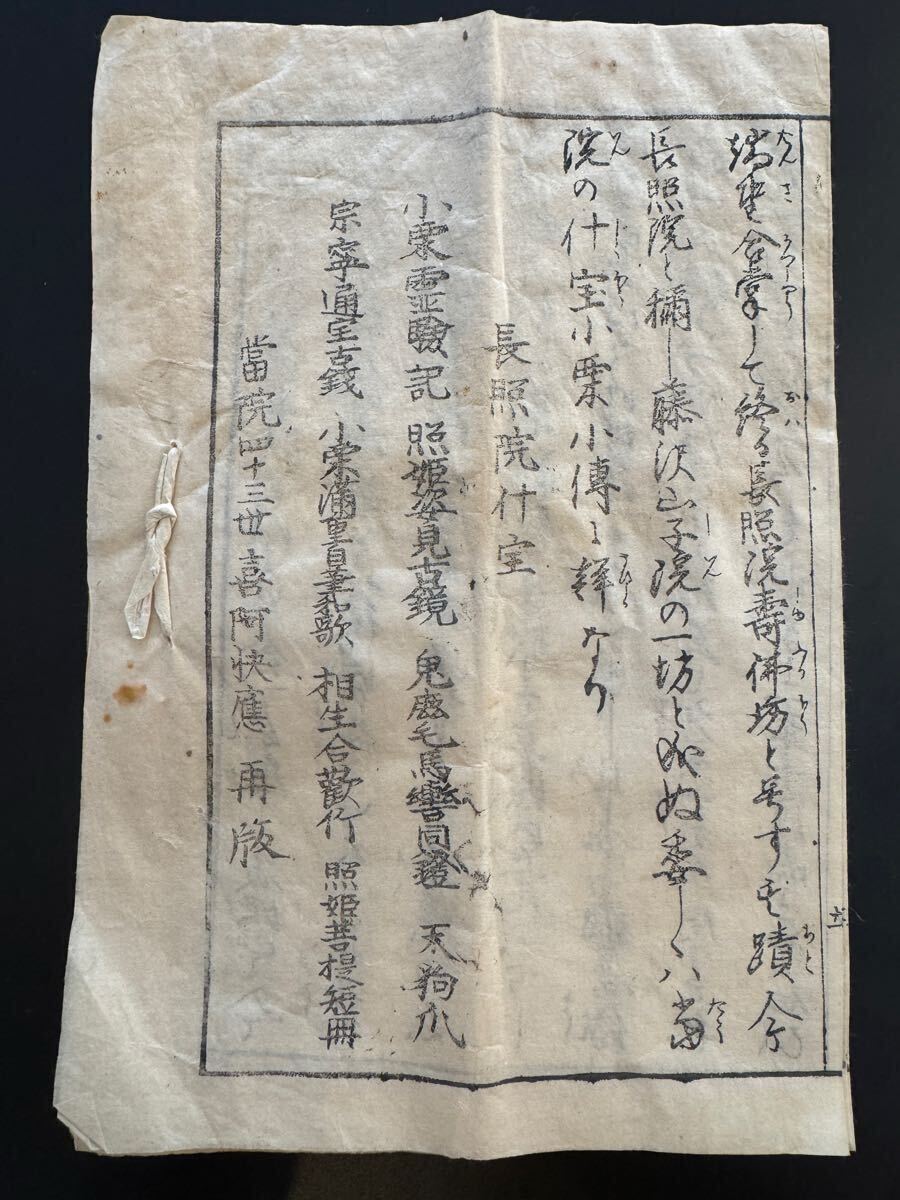 端坐合掌して終る長照院壽佛坊と号す其蹟今
長照院と稱し藤沢山子院の一坊と成ぬ委しくハ当
院の什宝小栗小傳に詳なり
長照院什宝
小栗霊驗記 照姫姿見古鏡 鬼鹿毛馬轡同鐙 天狗爪
宗寧通宝古銭 小栗満重自筆和歌 相生合歡竹 照姫菩提短冊
當院四十三世喜阿快應 再版
六